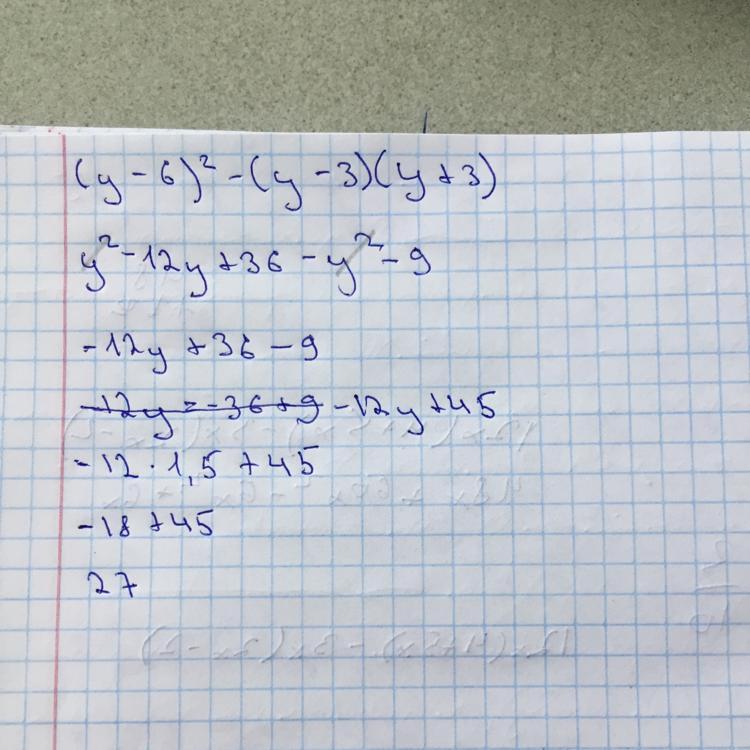 (y - 6)² - (y - 3)(y + 3)
y² - 12y + 36 - y² - 9
- 12y + 36 - 9
- 12y = - 36 + 9 - 12y + 45
- 12 · 1,5 + 45
- 18 + 45
27